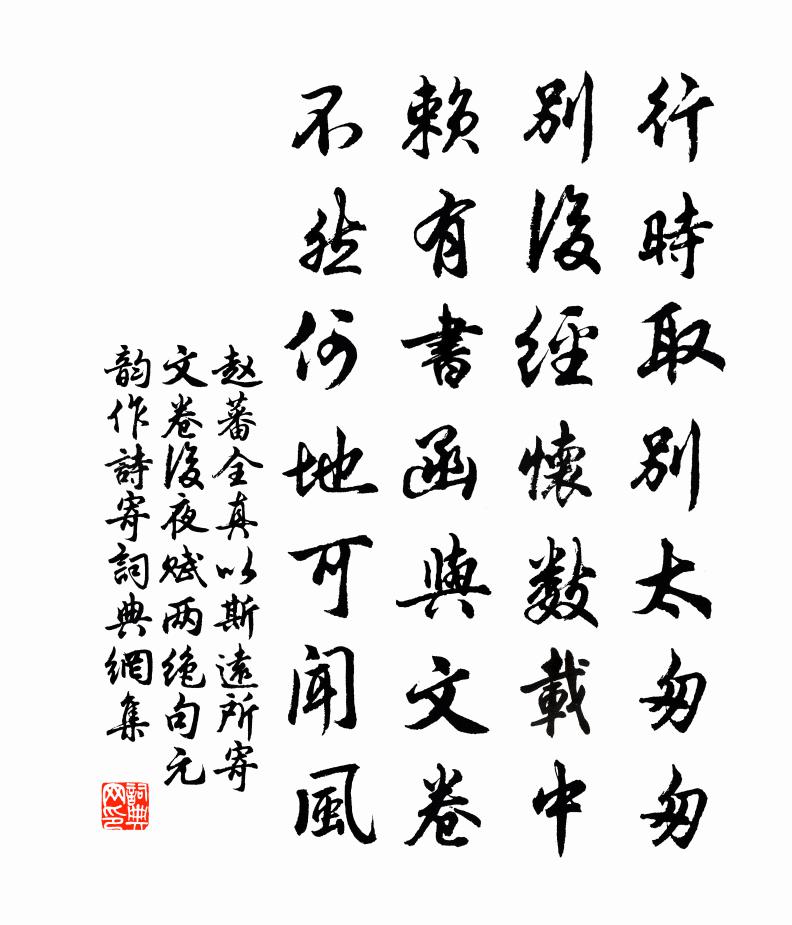 行時取別太匆匆
別後經懷數載中
賴有書函與文卷
不然何地可聞風
赵蕃全真以斯遠所寄
文卷後夜赋两绝句元
韵作詩寄詞典網集
詞典
网印